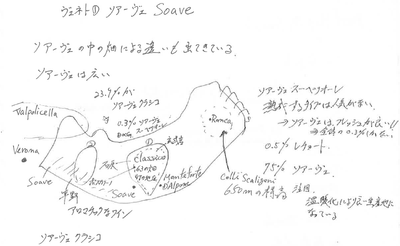 ヴェネト① ソアーヴェ Soave
ソアーヴェの中の畑による違いも出てきている。
ソアーヴェは広い
23.9%が
ソアーヴェ クラシコ
0.3% ソアーヴェ
DOCG スーペリオーレ
Valpolicella
Verona
Soave
平野
アロマティックなワイン
classico
Soave
Monteforte
D'Alpone
Ronca
Colli Scaligeri
650mの標高
ソアーヴェ スーペリオーレ
熟成するタイプは人気がない。
→ソアーヴェはフレッシュが良い!!
→全体の0.3%しかない。
0.5% レチョート。
75% ソアーヴェ。
注目
温暖化により
ソアーヴェ クラシコ